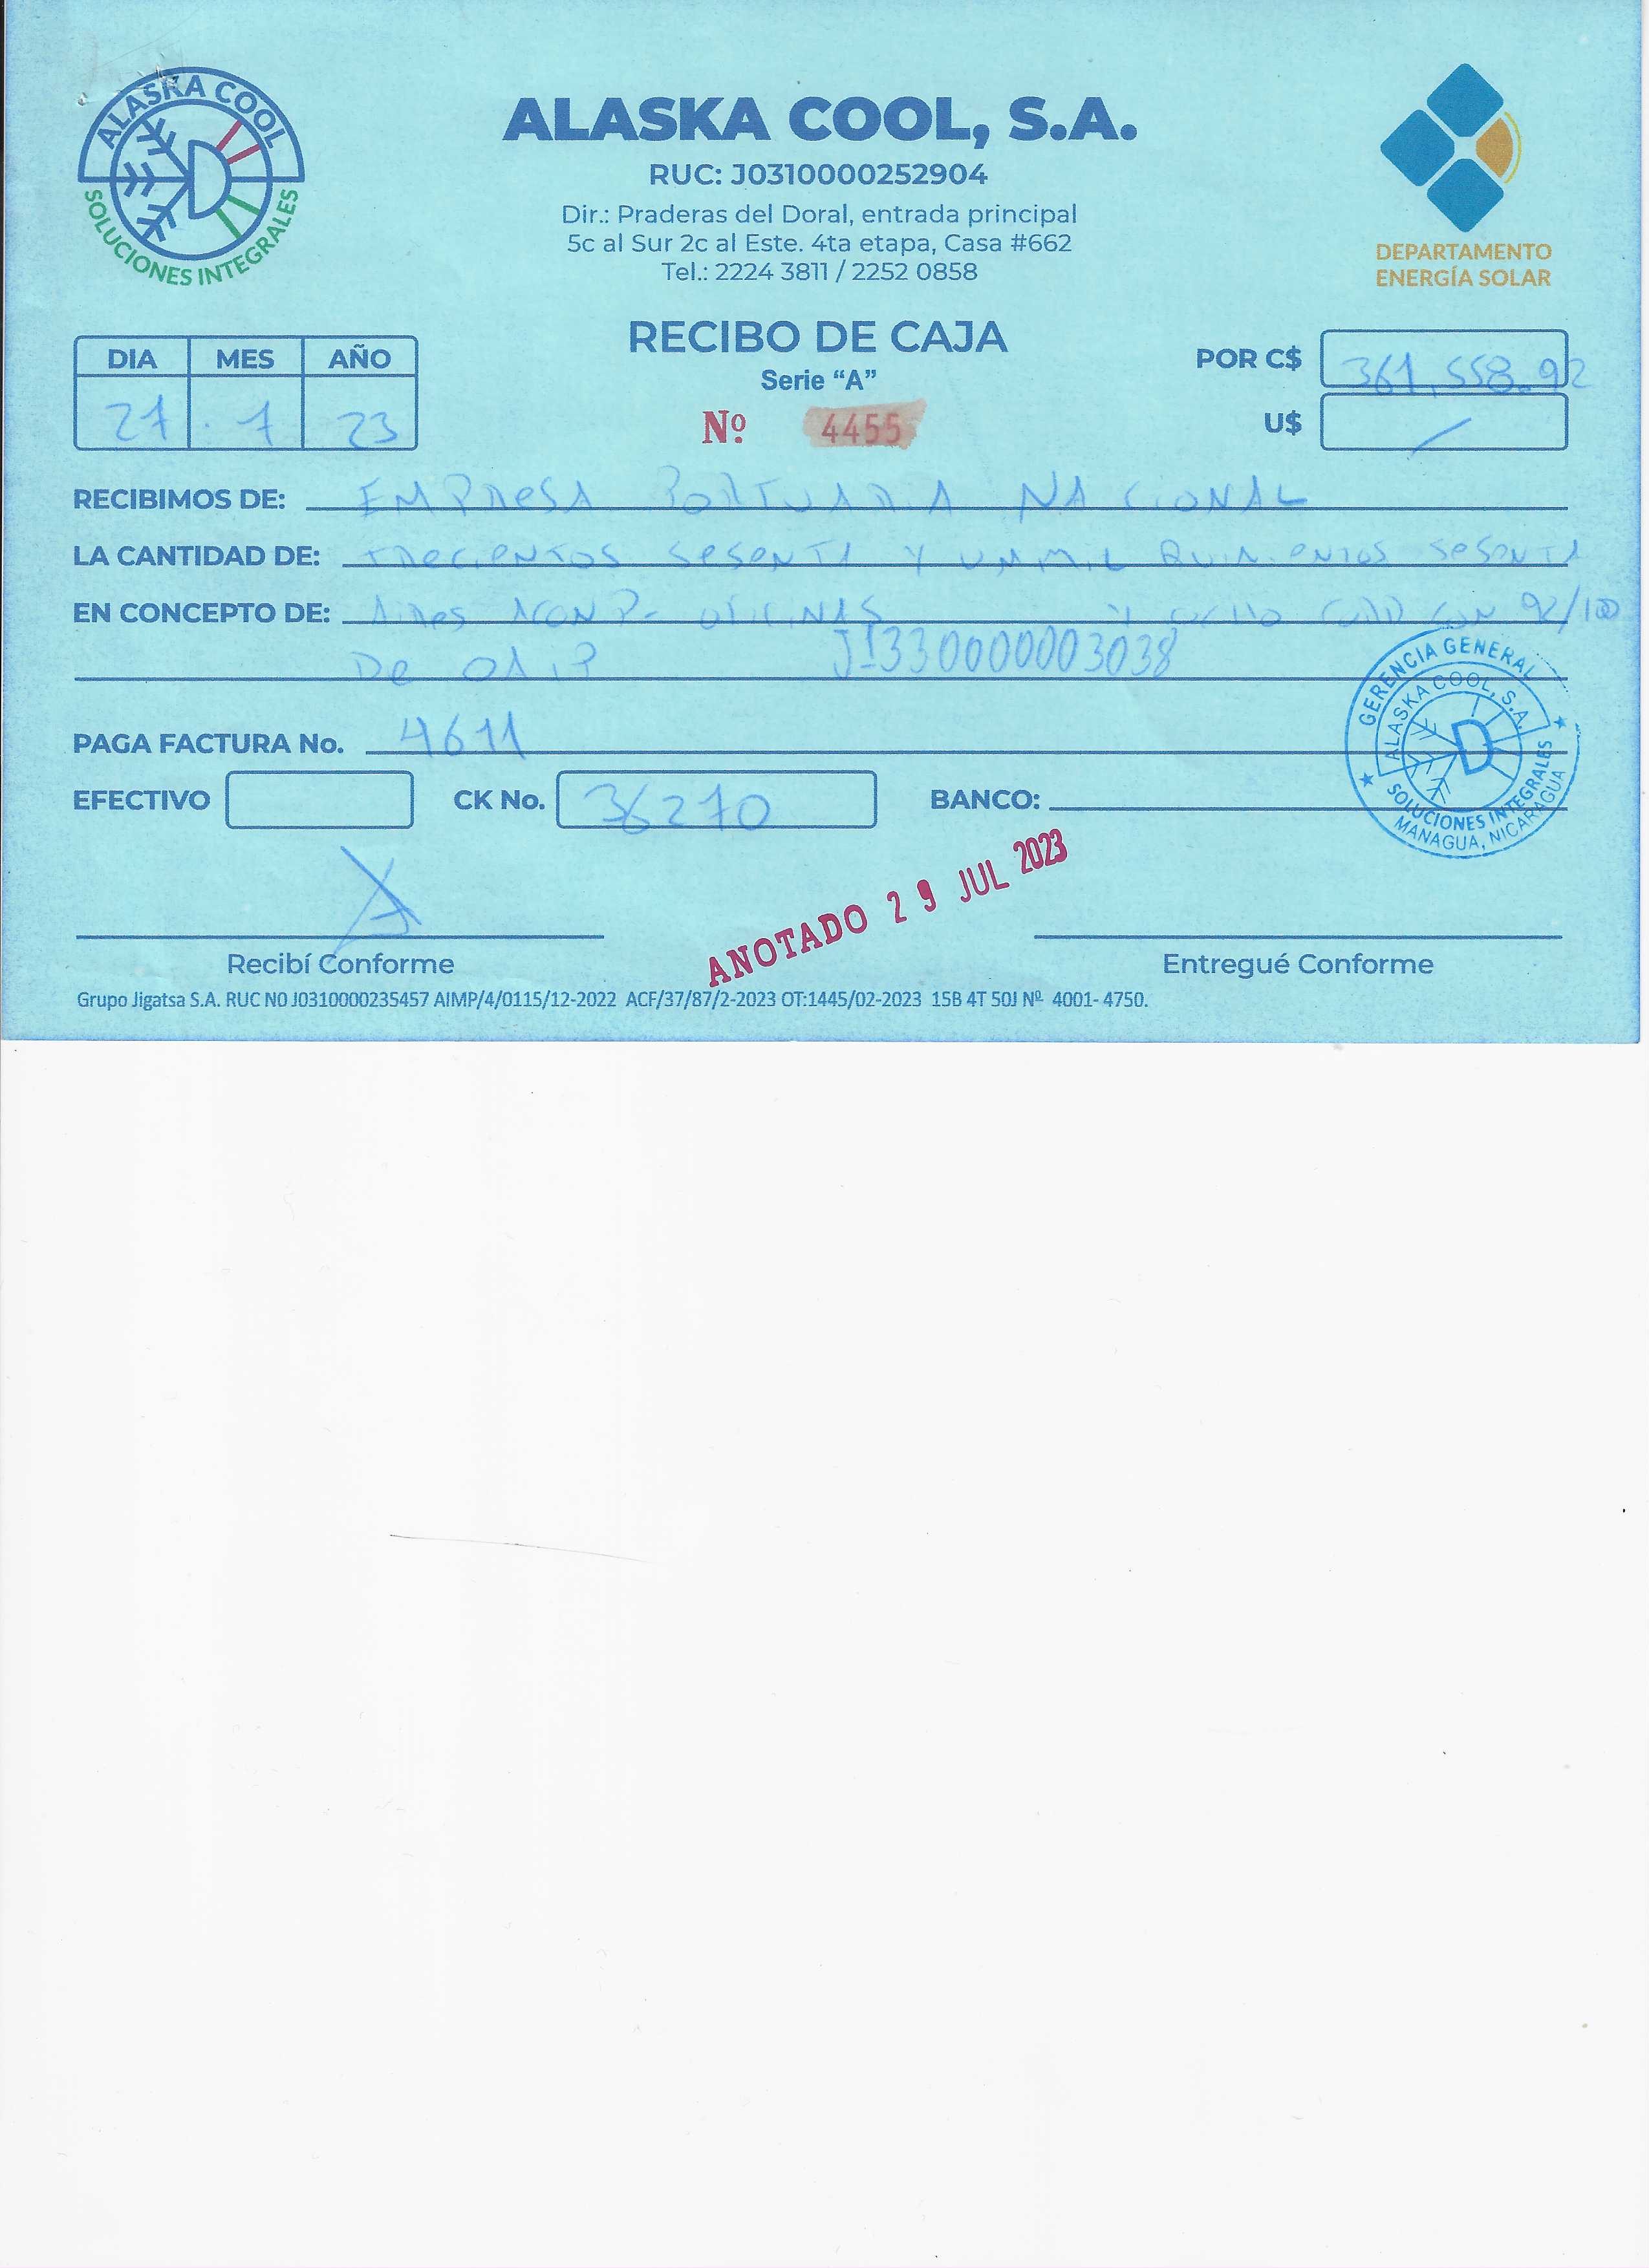 ALASKA COOL
SOLUCIONES INTEGRALES
ALASKA COOL, S.A.
RUC: J0310000252904
Dir.: Praderas del Doral, entrada principal
5c al Sur 2c al Este. 4ta etapa, Casa #662
Tel.: 2224 3811 / 2252 0858
DEPARTAMENTO
ENERGÍA SOLAR
RECIBO DE CAJA
Serie “A”
Nº 4455
DIA MES AÑO
27 7 23
POR C$ 361,558.92
U$
RECIBIMOS DE: EMPRESA PORTUARIA NACIONAL
LA CANTIDAD DE: trecientos sesenta y un mil quinientos sesenta
EN CONCEPTO DE: Aires ACONP- OFICINAS y ocho CORD CON 92/100
De J1330000003038
PAGA FACTURA No. 4611
EFECTIVO CK No. 36270 BANCO:
GERENCIA GENERAL
ALASKA COOL, S.A.
SOLUCIONES INTEGRALES
MANAGUA, NICARAGUA
ANOTADO 29 JUL 2023
Recibí Conforme Entregué Conforme
Grupo Jigatsa S.A. RUC N0 J0310000235457 AIMP/4/0115/12-2022 ACF/37/87/2-2023 OT:1445/02-2023 15B 4T 50J Nº 4001- 4750.